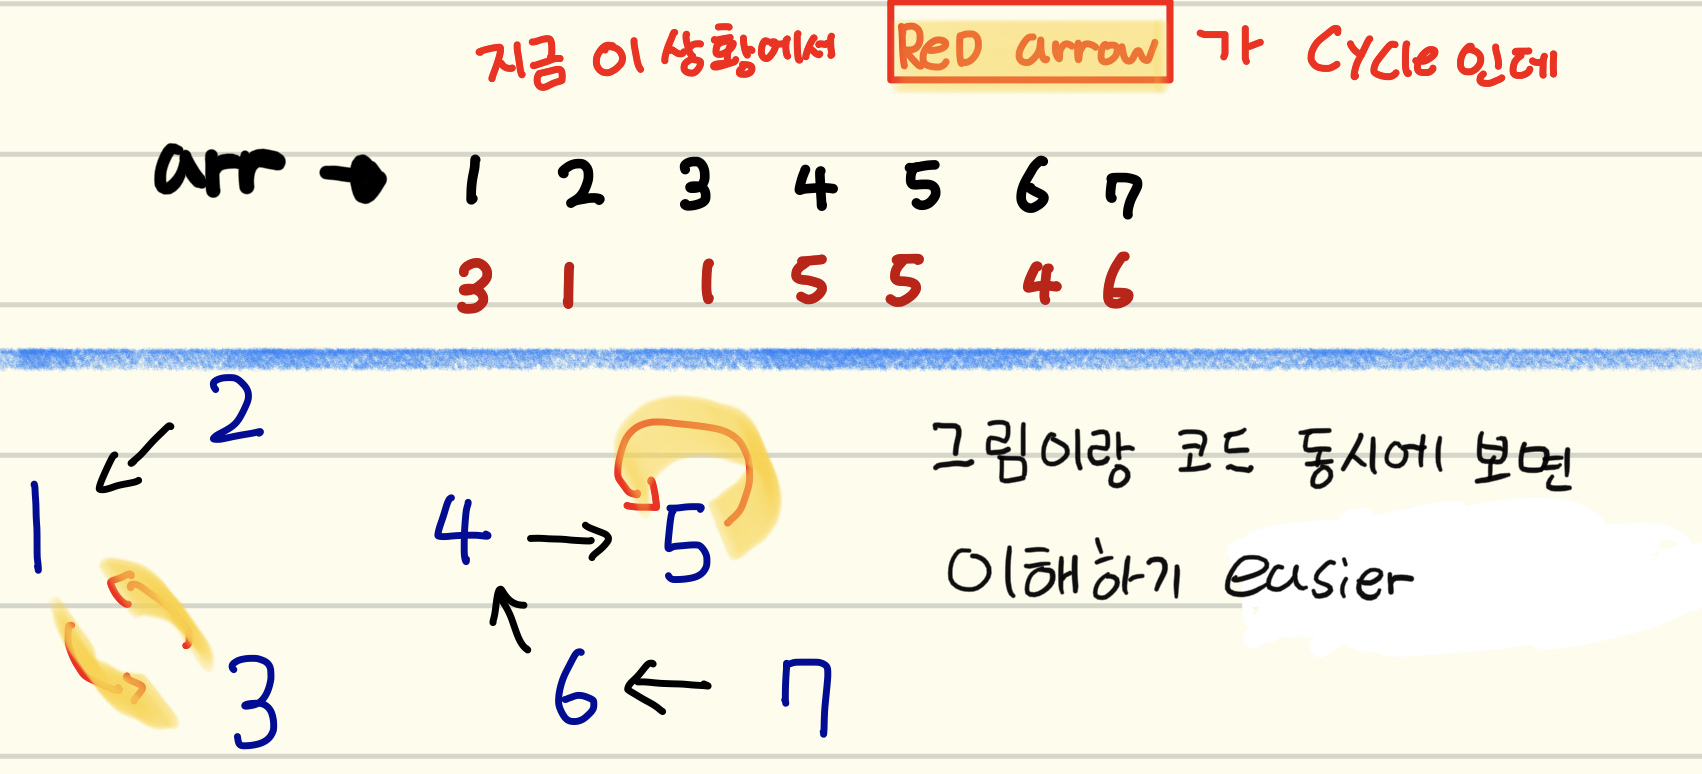 지금 이 상황에서 ReD arrow 가 Cycle 인데
arr → 1 2 3 4 5 6 7
3 1 1 5 5 4 6
2
1 4 → 5
3 6 ← 7
그림이랑 코드 동시에 보면
이해하기 easier